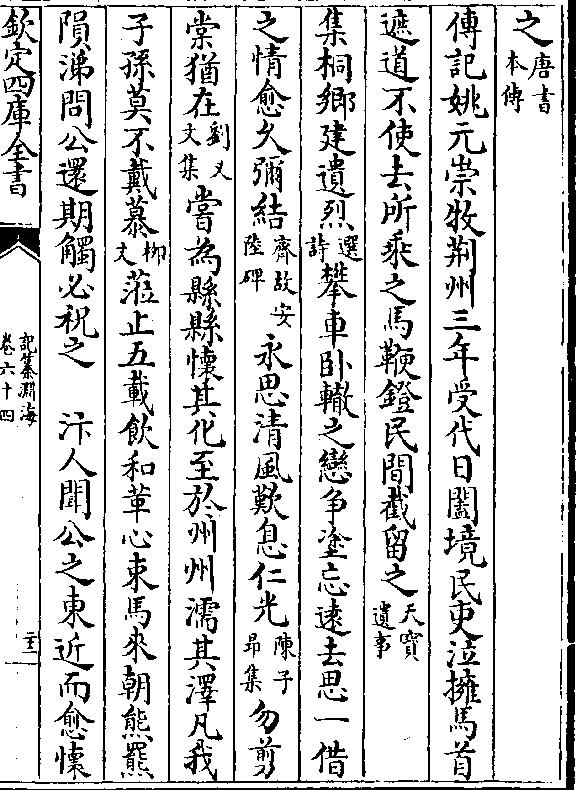 之唐書本傳
傳記姚元崇牧荆州三年受代日闔境民吏泣擁馬首
遮道不使去所乘之馬鞭鐙民間截留之天寶遺事
集桐鄉建遺烈選詩攀車卧轍之戀争塗忘遠去思一借
之情愈久彌結齊故安陸碑 永思清風歎息仁光陳子昂集勿剪
棠猶在劉乂文集嘗為縣縣懷其化至於州州濡其澤凡我
子孫莫不戴慕柳文蒞止五載飲和革心束馬來朝熊羆
隕涕問公還期觴必祝之 汴人聞公之東近而愈懷
欽定四庫全書
記纂淵海
卷六十四
二十二